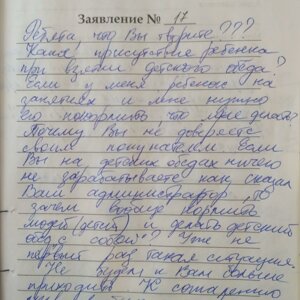 Заявление № 17
Ребята, что Вы творите???
Какое присутствие ребенка
при взятии детского обеда?
Если у меня ребенок на
занятиях и мне нужно
его покормить что мне делать?
Почему Вы не доверяете
своим покупателям. Если
Вы на детских обедах ничего
не зарабатываете как сказал
Ваш администратор, то
зачем вообще кормить
людей (детей) и делать детский
обед с собой?? Уже не
первый раз такая ситуация
Не будем к Вам больше
приходить. К сожалению